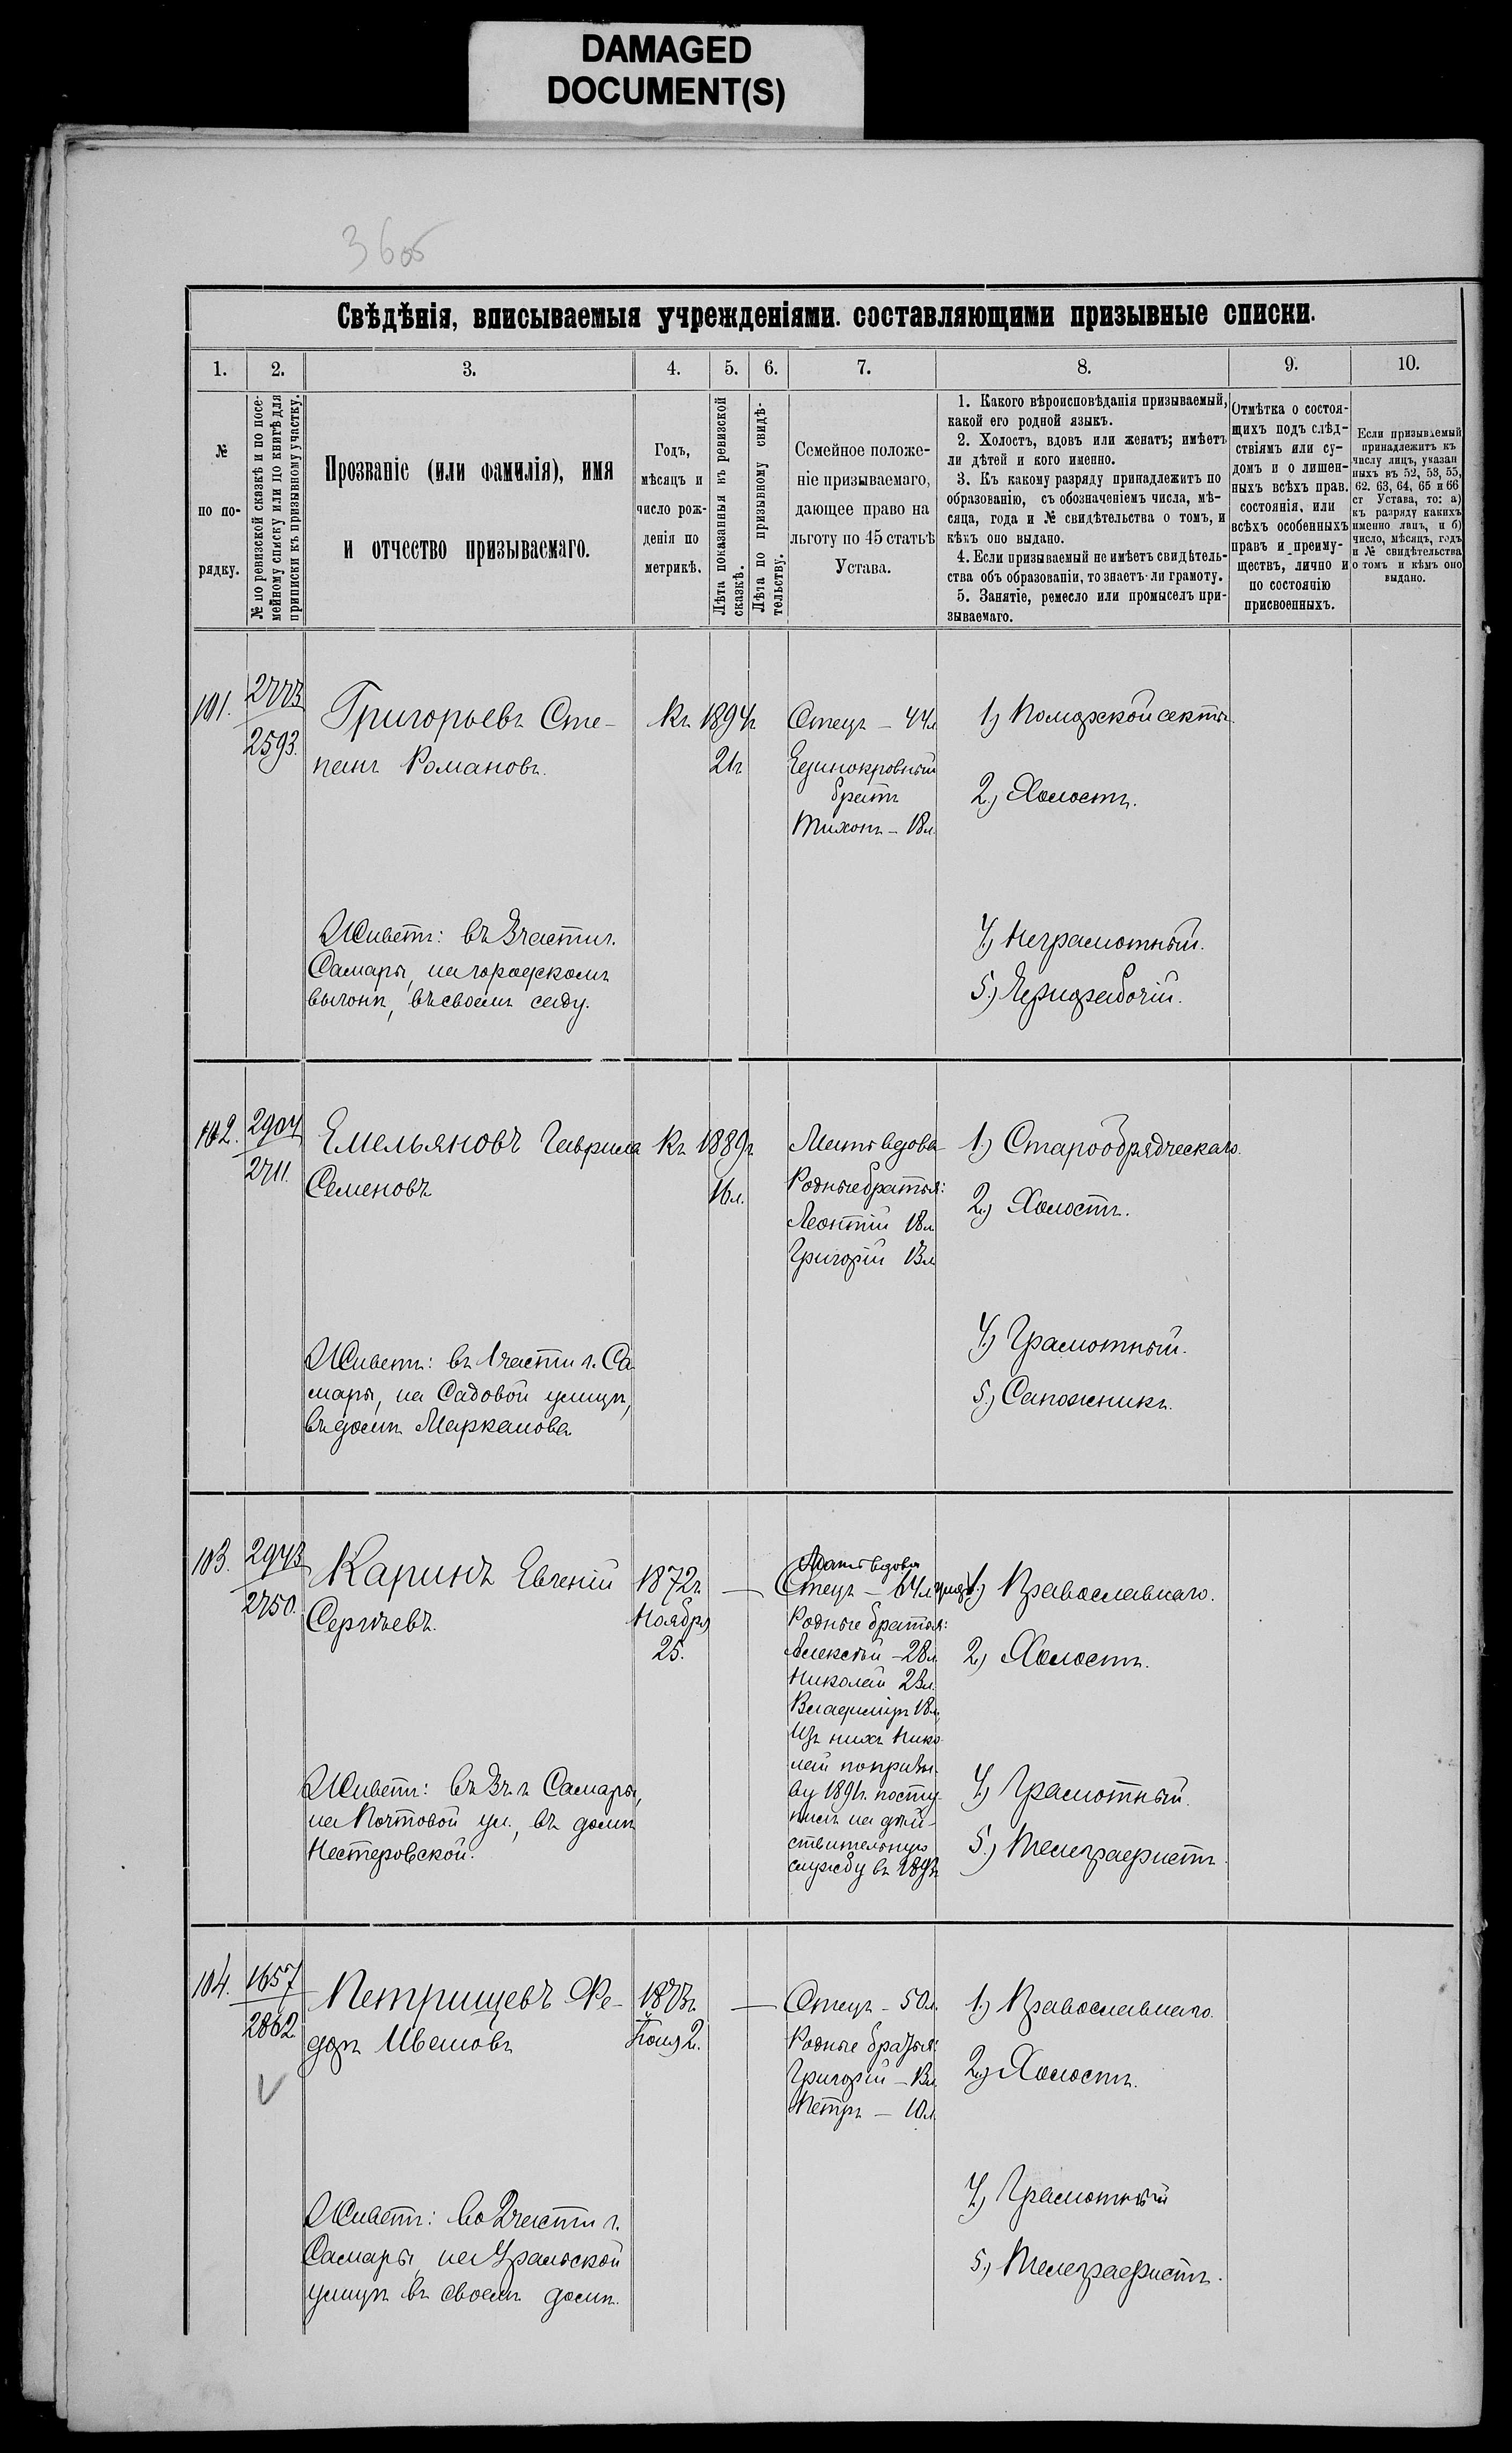 DAMAGED
DOCUMENT(S)
36об
Свѣдѣнія, вписываемыя учрежденіями. составляющими призывные списки.
1.
2.
3.
4.
5.
6.
7.
8.
9.
10.
№
по по-
рядку.
№ по ревизской сказкѣ и по посе-
мейному списку или по книгѣ для
приписки къ призывному участку.
Прозваніе (или фамилія), имя
и отчество призываемаго.
Годъ,
мѣсяцъ и
число рож-
денія по
метрикѣ.
Лѣта показанныя къ ревизской
сказкѣ.
Лѣта по призывному свидѣ-
тельству.
Семейное положе-
ніе призываемаго,
дающее право на
льготу по 45 статьѣ
Устава.
1. Какого вѣроисповѣданія призываемый,
какой его родной языкъ.
2. Холостъ, вдовъ или женатъ; имѣетъ
ли дѣтей и кого именно.
3. Къ какому разряду принадлежитъ по
образованію, съ обозначеніемъ числа, мѣ-
сяца, года и № свидѣтельства о томъ, и
кѣмъ оно выдано.
4. Если призываемый не имѣетъ свидѣтель-
ства объ образованіи, то знаетъ-ли грамоту.
5. Занятіе, ремесло или промыселъ при-
зываемаго.
Отмѣтка о состоя-
щихъ подъ слѣд-
ствіямъ или су-
домъ и о лишен-
ныхъ всѣхъ прав.
состоянія, или
всѣхъ особенныхъ
правъ и преиму-
ществъ, лично и
по состоянію
присвоенныхъ.
Если призываемый
принадлежитъ къ
числу лицъ, указан
ныхъ въ 52, 53, 55,
62. 63, 64, 65 и 66
ст Устава, то: а)
къ разряду какихъ
именно лицъ, и б)
число, мѣсяцъ, годъ
и № свидѣтельства
о томъ и кѣмъ оно
выдано.
101.
2773
2593.
Григорьевъ Сте-
панъ Романовъ.
Къ 1894г
21г
Отецъ – 44л
Единокровный
братъ
Тихонъ – 18л
1) Поморской секты.
2.) Холостъ.
Живетъ: въ 3 части г.
Самары, на городскомъ
выгонѣ, въ своемъ саду.
4.) Неграмотный.
5.) Чернорабочій.
102.
2904
2711.
Емельяновъ Гаврила
Семеновъ
Къ 1889г
16л.
Мать вдова
Родные братья:
Леонтій 18л
Григорій 13л
1) Старообрядческаго.
2.) Холостъ.
Живетъ: въ 1 части г. Са
мары, на Садовой улицѣ,
въ домѣ Маркелова
4.) Грамотный.
5.) Сапожникъ.
103.
2943
2750.
Каринъ Евгеній
Сергѣевъ.
1872г.
Ноября
25.
—
Мать вдова
Отецъ – 64л
Родные братья:
Алексѣй – 28л
Николай 23л.
Владиміръ 18л,
Изъ нихъ Нико
лай по призы-
ву 1891г. посту-
пилъ на дѣй-
ствительную
службу въ
1.) Православнаго.
2.) Холостъ.
Живетъ: въ 3 ч. г. Самары,
на Почтовой ул., въ домѣ
Нестеровской.
4.) Грамотный.
5.) Телеграфистъ.
104.
1657
2862.
Петрищевъ Фе-
доръ Ивановъ
1873г.
Іюня 2.
—
Отецъ – 50л.
Родные братья:
Григорій – 13л
Петръ – 10л.
1.) Православнаго.
2.) Холостъ.
Живетъ: во 2 части г.
Самары, на Уральской
улицѣ въ своемъ домѣ.
4.) Грамотный
5.) Телеграфистъ.